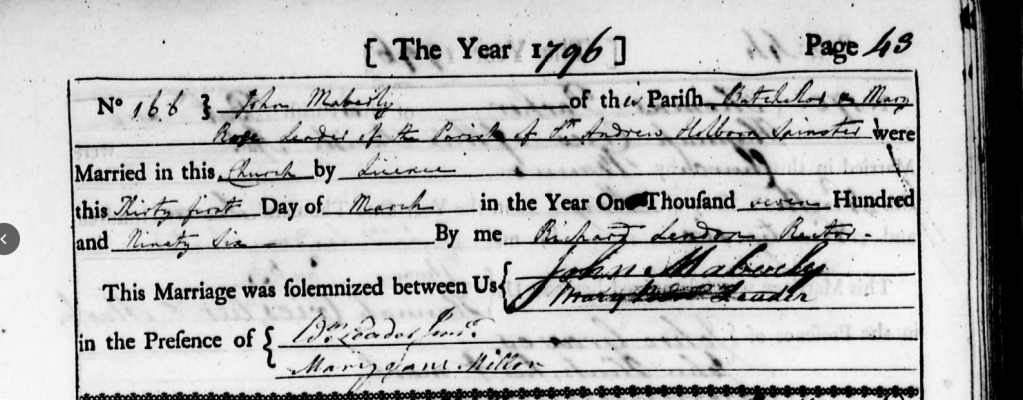 [ The Year 1796 ] Page 43
No 166 } John Maberly of this Parish Batchelor & Mary
Rose Leader of the Parish of St Andrew Holborn Spinster were
Married in this Church by Licence
this Thirty first Day of March in the Year One Thousand seven Hundred
and Ninety Six By me Richard Lendon Rector
This Marriage was solemnized between Us { John Maberly
Mary Rose Leader
in the Presence of { Wm Leader Junr
Mary Jane Miller